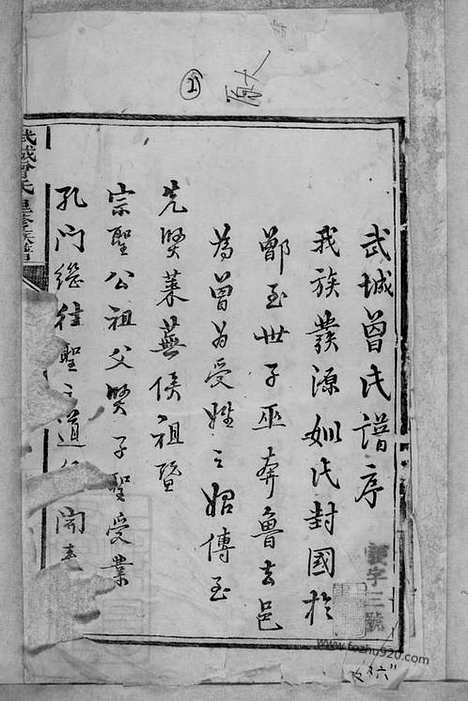 武城曾氏譜序
我族發源姒氏封國於
鄫至世子巫奔魯去邑
為曾為受姓之始傳至
先賢萊蕪侯祖暨
宗聖公祖父賢子聖受業
孔門繼往聖之道 開
武城曾氏重修族譜
字三號
www.tozhu920.com
2